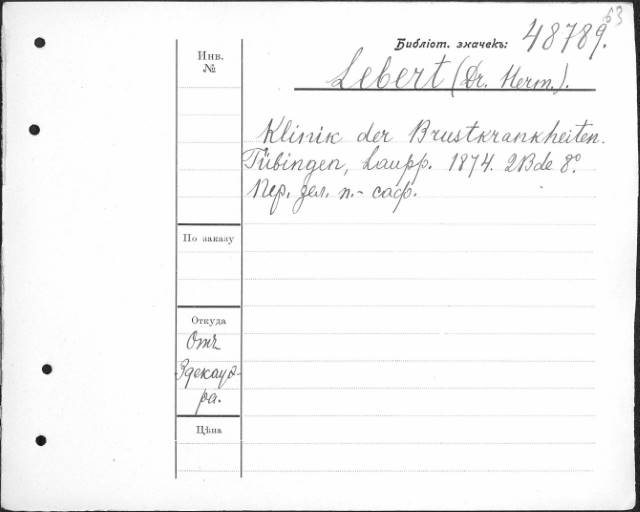 63
Библіот. значекъ: 48789.
Инв.
№
Lebert (Dr. Herm.).
Klinik der Brustkrankheiten.
Tübingen, Laupp. 1874. 2 Bde 8°.
Пер. зел. п.- саф.
По заказу
Откуда
Отъ
Здекауэ-
ра.
Цѣна